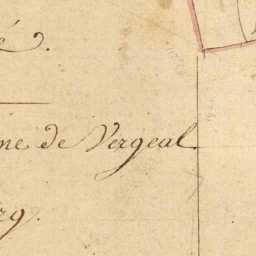 é.
ne de Vergeal
rg.